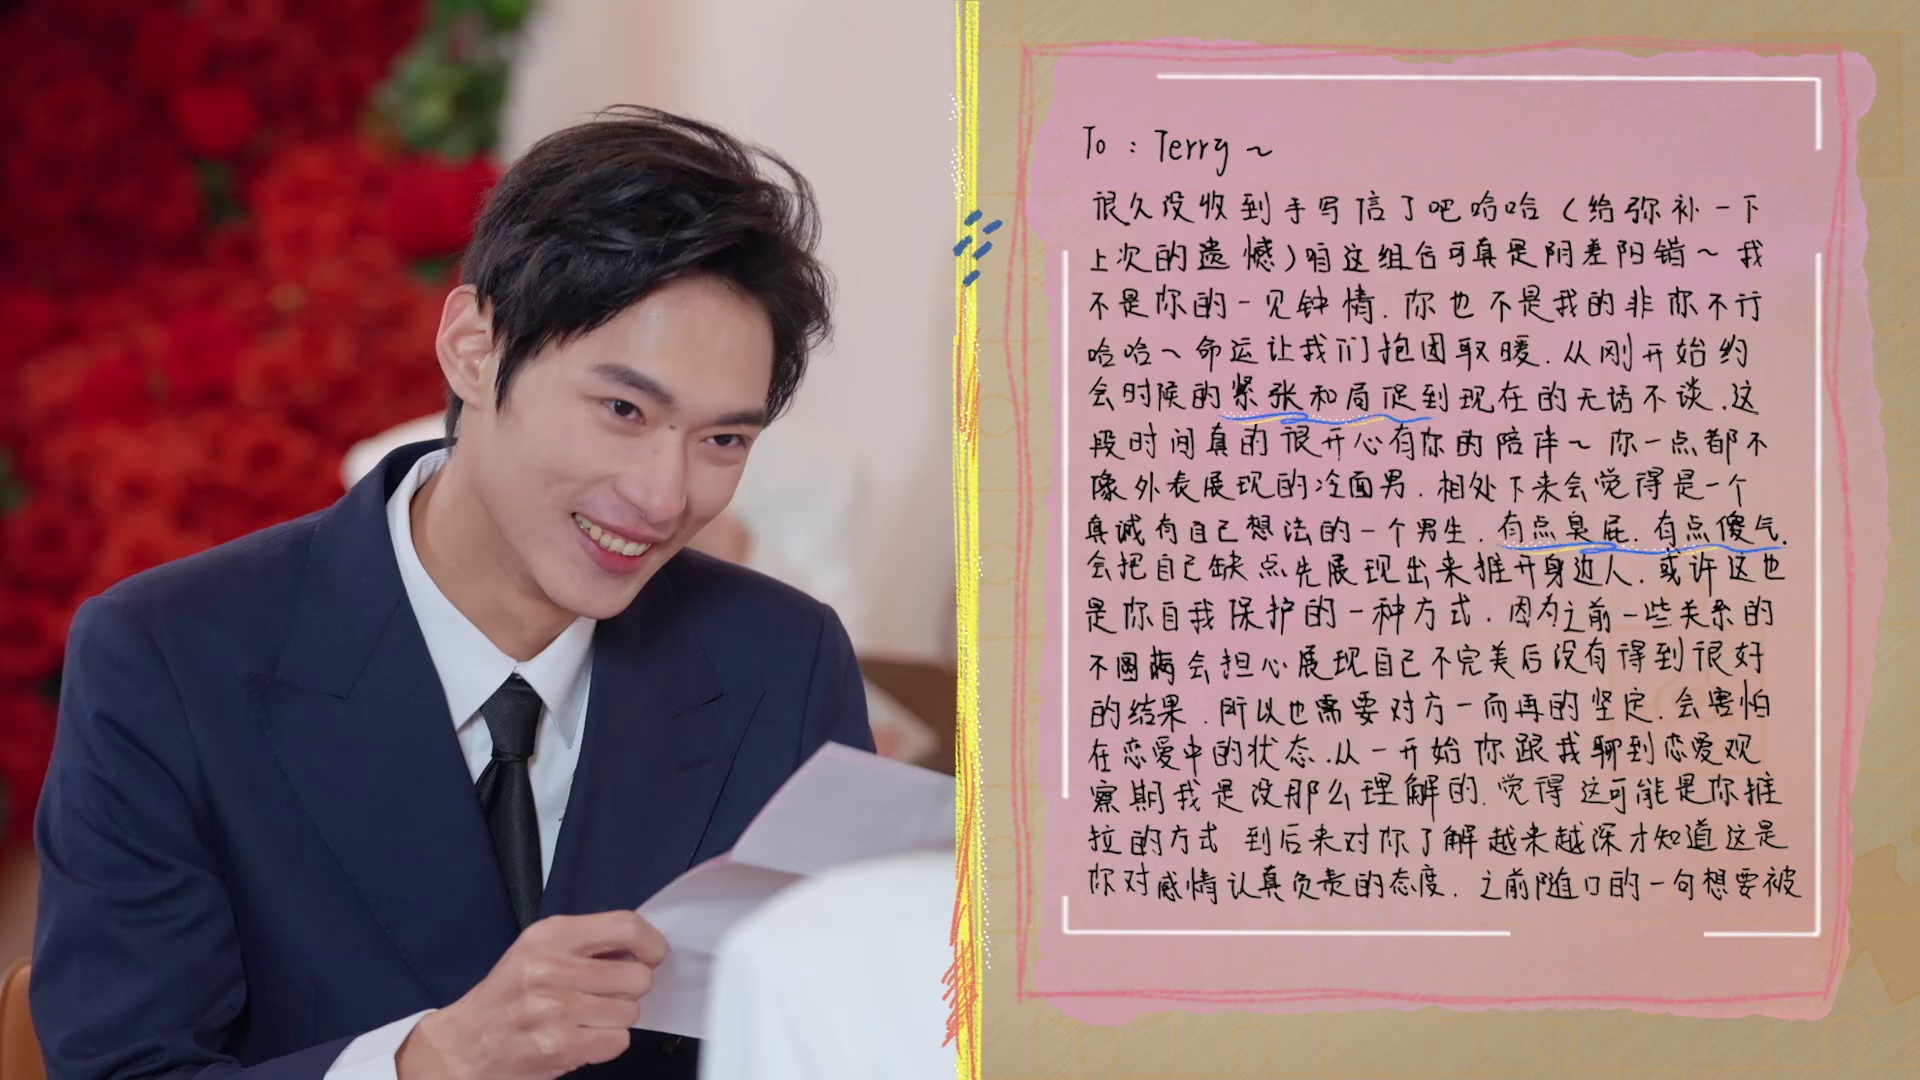 To：Terry～
很久没收到手写信了吧哈哈（给弥补一下
上次的遗憾）咱这组合可真是阴差阳错～我
不是你的一见钟情.你也不是我的非你不行
哈哈～命运让我们抱团取暖.从刚开始约
会时候的紧张和局促到现在的无话不谈.这
段时间真的很开心有你的陪伴～你一点都不
像外表展现的冷面男.相处下来会觉得是一个
真诚有自己想法的一个男生.有点臭屁.有点傻气.
会把自己缺点先展现出来推开身边人.或许这也
是你自我保护的一种方式.因为之前一些关系的
不圆满会担心展现自己不完美后没有得到很好
的结果.所以也需要对方一而再的坚定.会害怕
在恋爱中的状态.从一开始你跟我聊到恋爱观
察期我是没那么理解的.觉得这可能是你推
拉的方式 到后来对你了解越来越深才知道这是
你对感情认真负责的态度.之前随口的一句想要被